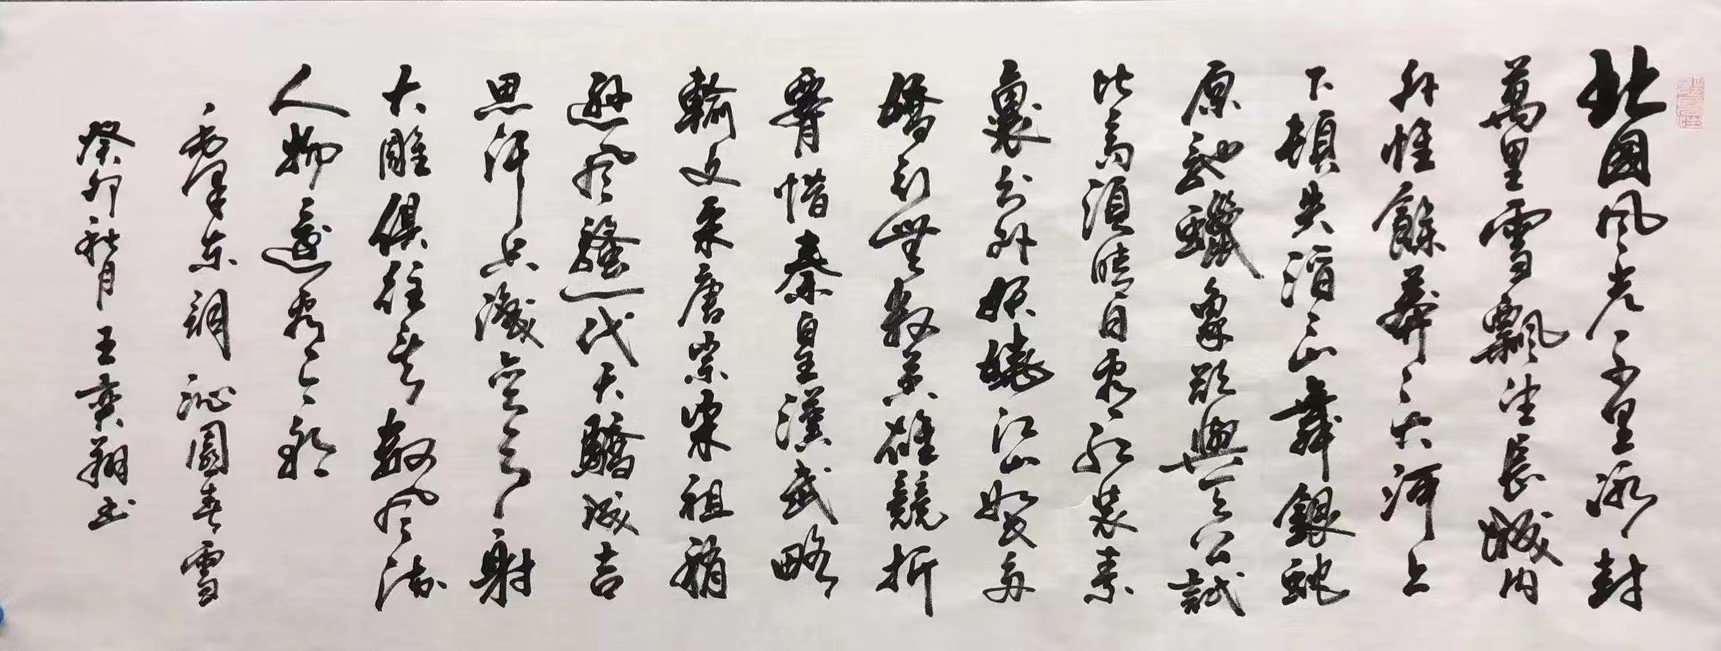 北國風光千里冰封
萬里雪飄望長城內
外惟餘莽々大河上
下頓失滔々山舞銀蛇
原馳蠟象欲與天公試
比高須晴日看紅裝素
裹分外妖嬈江山如此多
嬌引無數英雄競折
腰惜秦皇漢武略
輸文采唐宗宋祖稍
遜風騷一代天驕成吉
思汗只識彎弓射
大雕俱往矣數風流
人物還看今朝
毛澤東詞沁園春雪
癸卯秋月王奕翔書